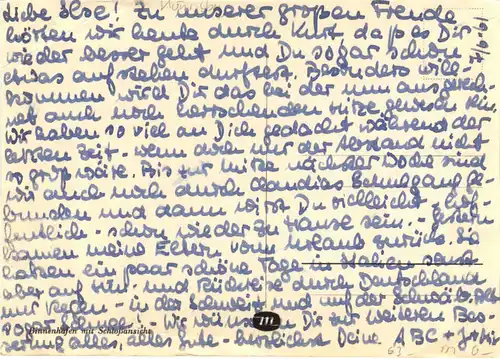 Liebe Ilse! Zu unserer großen Freude
hörten wir heute durch Kurt, daß es Dir
wieder besser geht und Du sogar schon
etwas aufstehen durftest. Besonders will-
kommen wird Dir das bei der nun ausgerech-
net auch noch herrschenden Hitze gewesen sein.
Wir haben so viel an Dich gedacht während der
letzten Zeit - wenn doch nur der Abstand nicht
so groß wäre. Bis zur Mitte nächster Woche sind
wir auch noch durch Claudias Schulgang ge-
bunden und dann wirst Du vielleicht, hof-
fentlich - schon wieder zu Hause sein. - Gestern
kamen meine Eltern vom Urlaub zurück. Sie
hatten ein paar schöne Tage in Italien sonst
aber auf Hin- und Rückreise durch Deutschland
nur Regen - in der Schweiz und auf der Schwäb. Alb
sogar
wir wünschen Dir zur weiteren Bes-
serung alles, alles Gute - herzlichst Deine ABC +
Binnenhafen mit Schloßansicht
m